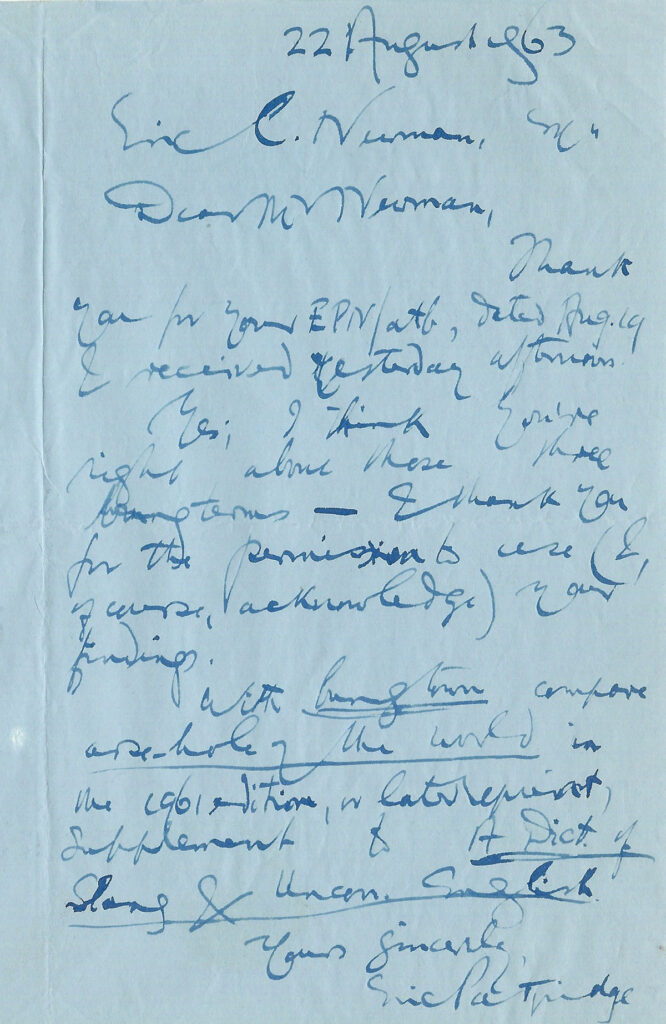 22 August 1963
Eric C. Newman, Esq.
Dear Mr Newman,
Thank
you for your EPN/atb, dated Aug. 19
& received yesterday afternoon.
Yes; I think you're
right about those three
bung terms — & thank you
for the permission to use (&,
of course, acknowledge) your
findings.
With bungtown compare
arse-hole of the world in
the 1961 edition, or later reprint,
Supplement to A Dict. of
Slang & Uncon. English.
Yours sincerely,
Eric Partridge